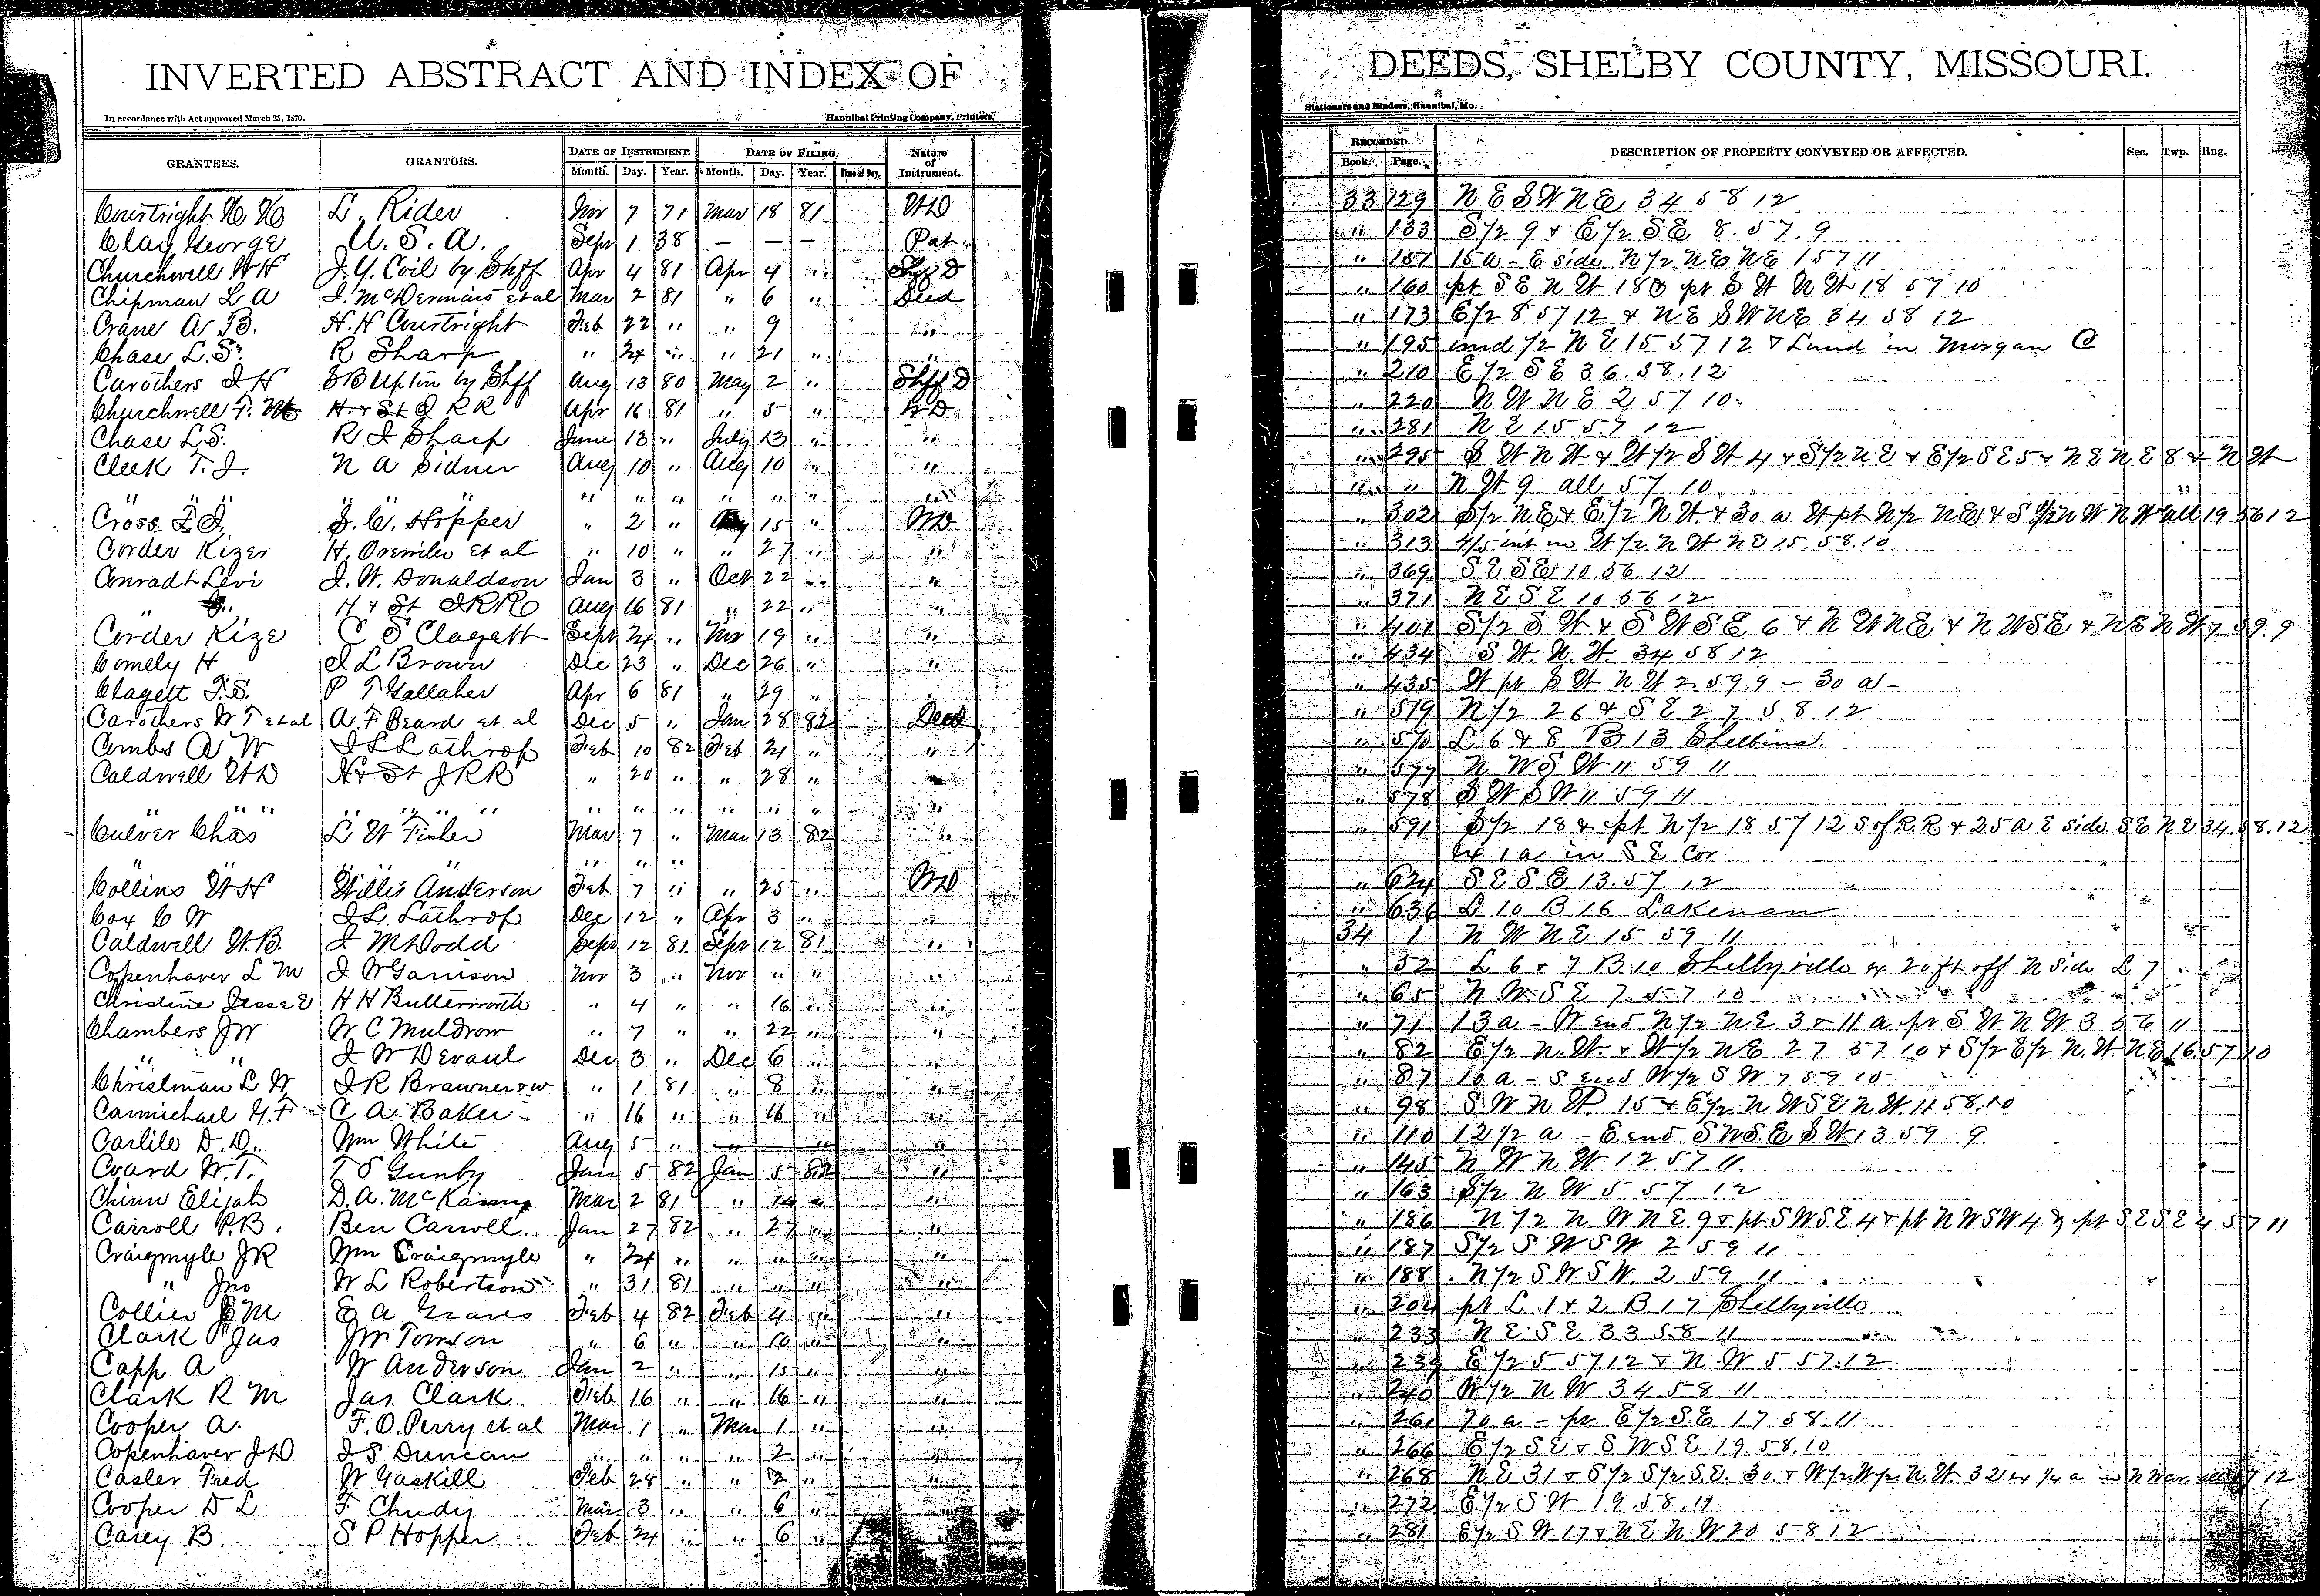 INVERTED ABSTRACT AND INDEX OF DEEDS, SHELBY COUNTY, MISSOURI.
In accordance with Act approved March 25, 1870. Hannibal Printing Company, Printers, Stationers and Binders, Hannibal, Mo.
GRANTEES. GRANTORS. DATE OF INSTRUMENT. DATE OF FILING. Nature of Instrument. RECORDED. DESCRIPTION OF PROPERTY CONVEYED OR AFFECTED. Sec. Twp. Rng.
Month. Day. Year. Month. Day. Year. Time of Day. Book. Page.
Courtright H H L. Rider Nov 7 71 Mar 18 81 WD 33 129 N E S W N E 34 58 12
Clay George U. S. A. Sept 1 38 — — — Pat " 133 S 1/2 9 & E 1/2 SE 8. 57. 9
Churchwell W H J. Y. Coil by Shff Apr 4 81 Apr 4 " Shff D " 157 15 a - E side N 1/2 N E N E 1 57 11
Chipman L A et al Mar 2 81 " 6 " Deed " 160 pt S E N W 18 & pt S W N W 18 57 10
Crane A B. H. H Courtright Feb 22 " " 9 " " 173 E 1/2 8 57 12 & N E S W N E 34 58 12
Chase L. S. R Sharp " 24 " " 21 " " " 195 und 1/2 N E 15 57 12 & Land in Morgan C
Carothers J H S B Upton by Shff Aug 13 80 May 2 " Shff D " 210 E 1/2 S E 36. 58. 12
Churchwell F. M H & St J RR Apr 16 81 " 5 " WD " 220 N W N E 2 57 10
Chase L. S. R. J Sharp June 13 " July 13 " " " 281 N E 15 57 12
Cleek T. J. N A Sidner Aug 10 " Aug 10 " " " 295 S W N W & W 1/2 S W 4 & S 1/2 N E & E 1/2 S E 5 & N E N E 8 & N W
" " " " " " " " " " " " " " N W 9 all 57 10
Cross J. C. Hopper " 2 " Aug 15 " WD " 302 S 1/2 N E & E 1/2 N W & 30 a W pt N 1/2 N E & S 1/2 N W N W all 19 56 12
Corder Kizer et al " 10 " " 27 " " " 313 4/5 int in W 1/2 N W N E 15. 58. 10
Conradt Levi J. W. Donaldson Jan 3 " Oct 22 " " " 369 S E S E 10 56. 12
" H & St J RR Co Aug 16 81 " 22 " " " 371 N E S E 10 56 12
Corder Kize C S Clagett Sept 24 " Nov 19 " " " 401 S 1/2 S W & S W S E 6 & N W N E & N W S E & N E N W 7 59. 9
Comely H J L Brown Dec 23 " Dec 26 " " " 434 S W. N. W. 34 58 12
Clagett T. S. P T Gallaher Apr 6 81 " 29 " " " 435 W pt S W N W 2 59. 9 - 30 a -
Carothers W T et al A. F Beard et al Dec 5 " Jan 28 82 Deed " 519 N 1/2 26 & S E 27 58. 12
Combs A W J L Lathrop Feb 10 82 Feb 24 " " " 570 L 6 & 8 B 13 Shelbina.
Caldwell W D H & St J RR " 20 " " 28 " " " 577 N W S W 11 59 11
" " " " " " " " " " " " " 578 S W S W 11 59 11
Culver Chas L W Fisher Mar 7 " Mar 13 82 " " 591 S 1/2 18 & pt N 1/2 18 57 12 S of R. R & 25 a E side S E N E 34 58. 12
" " " " " ex 1 a in S E Cor
Collins W H Willis Anderson Feb 7 " " 25 " WD " 624 S E S E 13. 57 12
Cox C W J L Lathrop Dec 12 " Apr 3 " " " 636 L 10 B 16 Lakenan
Caldwell W. B. J M Dodd Sept 12 81 Sept 12 81 " 34 1 N W N E 15 59 11
Copenhaver L M J W Garrison Nov 3 " Nov " " " " 52 L 6 & 7 B 10 Shelbyville ex 20 ft off N side L 7
Christine Jesse E H H Butterworth " 4 " " 16 " " " 65 N W S E 7 57 10
Chambers J W W C Muldrow " 7 " " 22 " " " 71 13 a - W end N 1/2 N E 3 & 11 a pt S W N W 3 56 11
" " J W Devaul Dec 3 " Dec 6 " " " 82 E 1/2 N. W. & W 1/2 N E 27 57 10 & S 1/2 E 1/2 N. W. N E 16. 57 10
Christman L W J R Brawner & w " 1 81 " 8 " " " 87 10 a - S end W 1/2 S W 7 59 10
Carmichael Y. F C A Baker " 16 " " 16 " " " 98 S W N W 15 & E 1/2 N W S E N W 11 58. 10
Carlile D. D. Wm White Aug 5 " — — " " " 110 12 1/2 a - E. end S W S. E S W 13 59 9
Coard W. T. T S Gunby Jan 5 82 Jan 5 82 " " 145 N W N W 12 57 11
Chinn Elijah D. A. Mar 2 81 " 14 " " " 163 S 1/2 N W 5 57 12
Carroll P. B. Ben Carroll. Jan 27 82 " 27 " " " 186 N 1/2 N W N E 9 & pt S W S E 4 & pt N W S W 4 & pt S E S E 4 57 11
Craigmyle J R Wm Craigmyle " 24 " " " " " " 187 S 1/2 S W S W 2 59 11
" Jno W L Robertson " 31 81 " " " " " 188 N 1/2 S W S W 2 59 11
Collier E M E A Graves Feb 4 82 Feb 4 " " " 204 pt L 1 & 2 B 17 Shelbyville
Clark Jas J W Towson " 6 " " 10 " " " 233 N E S E 33 58 11
Capp A W Anderson Jan 2 " " 15 " " " 239 E 1/2 5 57. 12 & N. W 5 57. 12
Clark R M Jas Clark Feb 16 " " 16 " " " 240 W 1/2 N W 34 58 11
Cooper A. F. O. Perry et al Mar 1 " Mar 1 " " " 261 70 a - pt E 1/2 S E 17 58 11
Copenhaver J D J S Duncan " " " " 2 " " " 266 E 1/2 S E & S W S E 19. 58. 10
Casler Fred W Gaskill Feb 28 " " 2 " " " 268 N E 31 & S 1/2 S 1/2 S E. 30. & W 1/2 W 1/2 N. W. 32 ex 1/4 a in N W cor. all 57 12
Cooper D L F Chudy Mar 3 " " 6 " " " 272 E 1/2 S W 19. 58. 11
Casey B S P Hopper Feb 24 " " 6 " " " 281 E 1/2 S W 17 & N E N. W 20 58 12